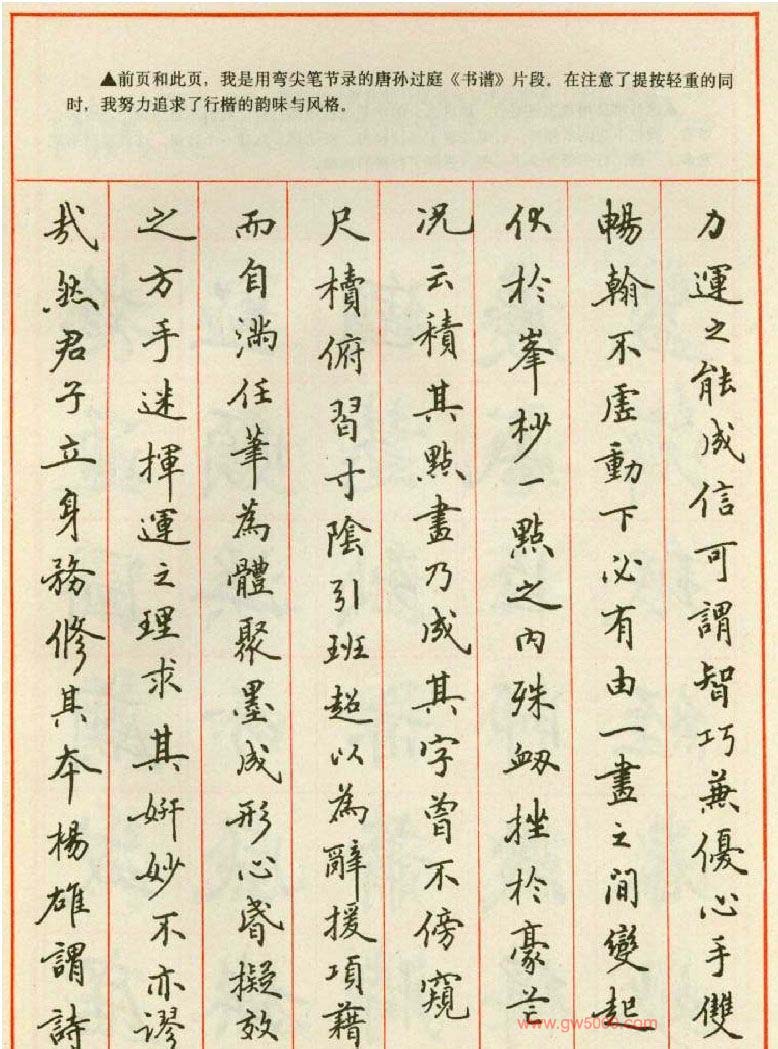 ▲前页和此页，我是用弯尖笔节录的唐孙过庭《书谱》片段。在注意了提按轻重的同
时，我努力追求了行楷的韵味与风格。
力運之能成信可謂智巧兼優心手雙
暢翰不虛動下必有由一畫之間變起
伏於峯杪一點之内殊衂挫於豪芒
况云積其點畫乃成其字曾不傍窺
尺櫝俯習寸陰引班超以為辭援項藉
而自滿任筆為體聚墨成形心昏擬效
之方手迷揮運之理求其妍妙不亦謬
哉然君子立身務修其本楊雄謂詩
www.gw5000.com